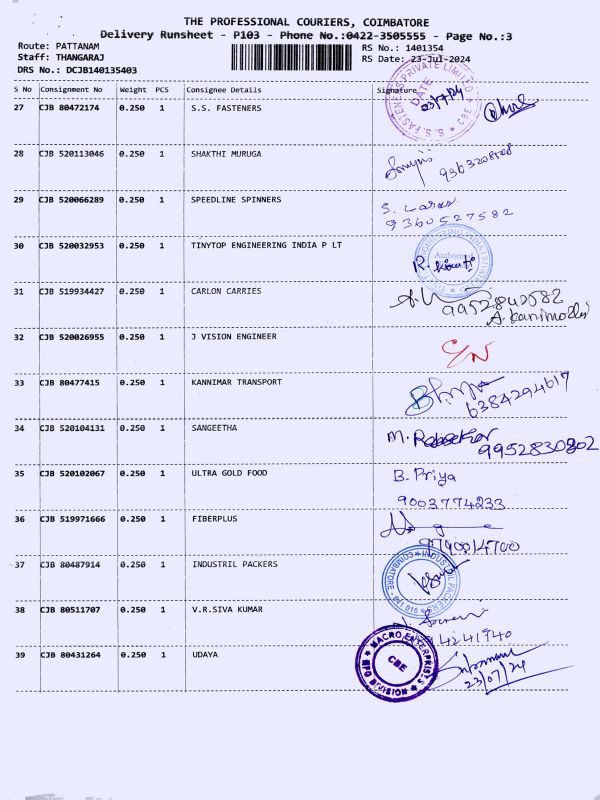 THE PROFESSIONAL COURIERS, COIMBATORE
Delivery Runsheet - P103 - Phone No.:0422-3505555 - Page No.:3
Route: PATTANAM RS No.: 1401354
Staff: THANGARAJ RS Date: 23-Jul-2024
DRS No.: DCJB140135403
S No Consignment No Weight PCS Consignee Details Signature
S. S. FASTENERS PRIVATE LIMITED
DATE
23/7/24
27 CJB 80472174 0.250 1 S.S. FASTENERS
28 CJB 520113046 0.250 1 SHAKTHI MURUGA
29 CJB 520066289 0.250 1 SPEEDLINE SPINNERS
9360527582
30 CJB 520032953 0.250 1 TINYTOP ENGINEERING INDIA P LT
31 CJB 519934427 0.250 1 CARLON CARRIES
9952840582
A. Kanimozhi
32 CJB 520026955 0.250 1 J VISION ENGINEER
33 CJB 80477415 0.250 1 KANNIMAR TRANSPORT
6384294617
34 CJB 520104131 0.250 1 SANGEETHA
9952830802
35 CJB 520102067 0.250 1 ULTRA GOLD FOOD B. Priya
9003774233
36 CJB 519971666 0.250 1 FIBERPLUS
9790014700
37 CJB 80487914 0.250 1 INDUSTRIL PACKERS
INDUSTRIL PACKERS
COIMBATORE - 641 016
38 CJB 80511707 0.250 1 V.R.SIVA KUMAR
MACRO ENTERPRISES
CBE
MFG DIVISION
39 CJB 80431264 0.250 1 UDAYA
23/07/24